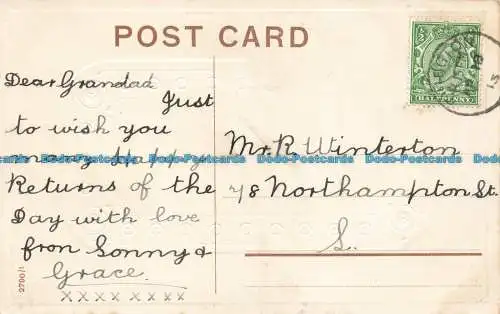 POST CARD
HALFPENNY
Dear Grandad
Just
to wish you
many Happy
Returns of the
Day with love
fron Sonny &
Grace.
x x x x x x x x
Mr. R Winterton
78 Northampton St.
S.
2790/1
Dodo-Postcards Dodo-Postcards Dodo-Postcards Dodo-Postcards Dodo-Postcards